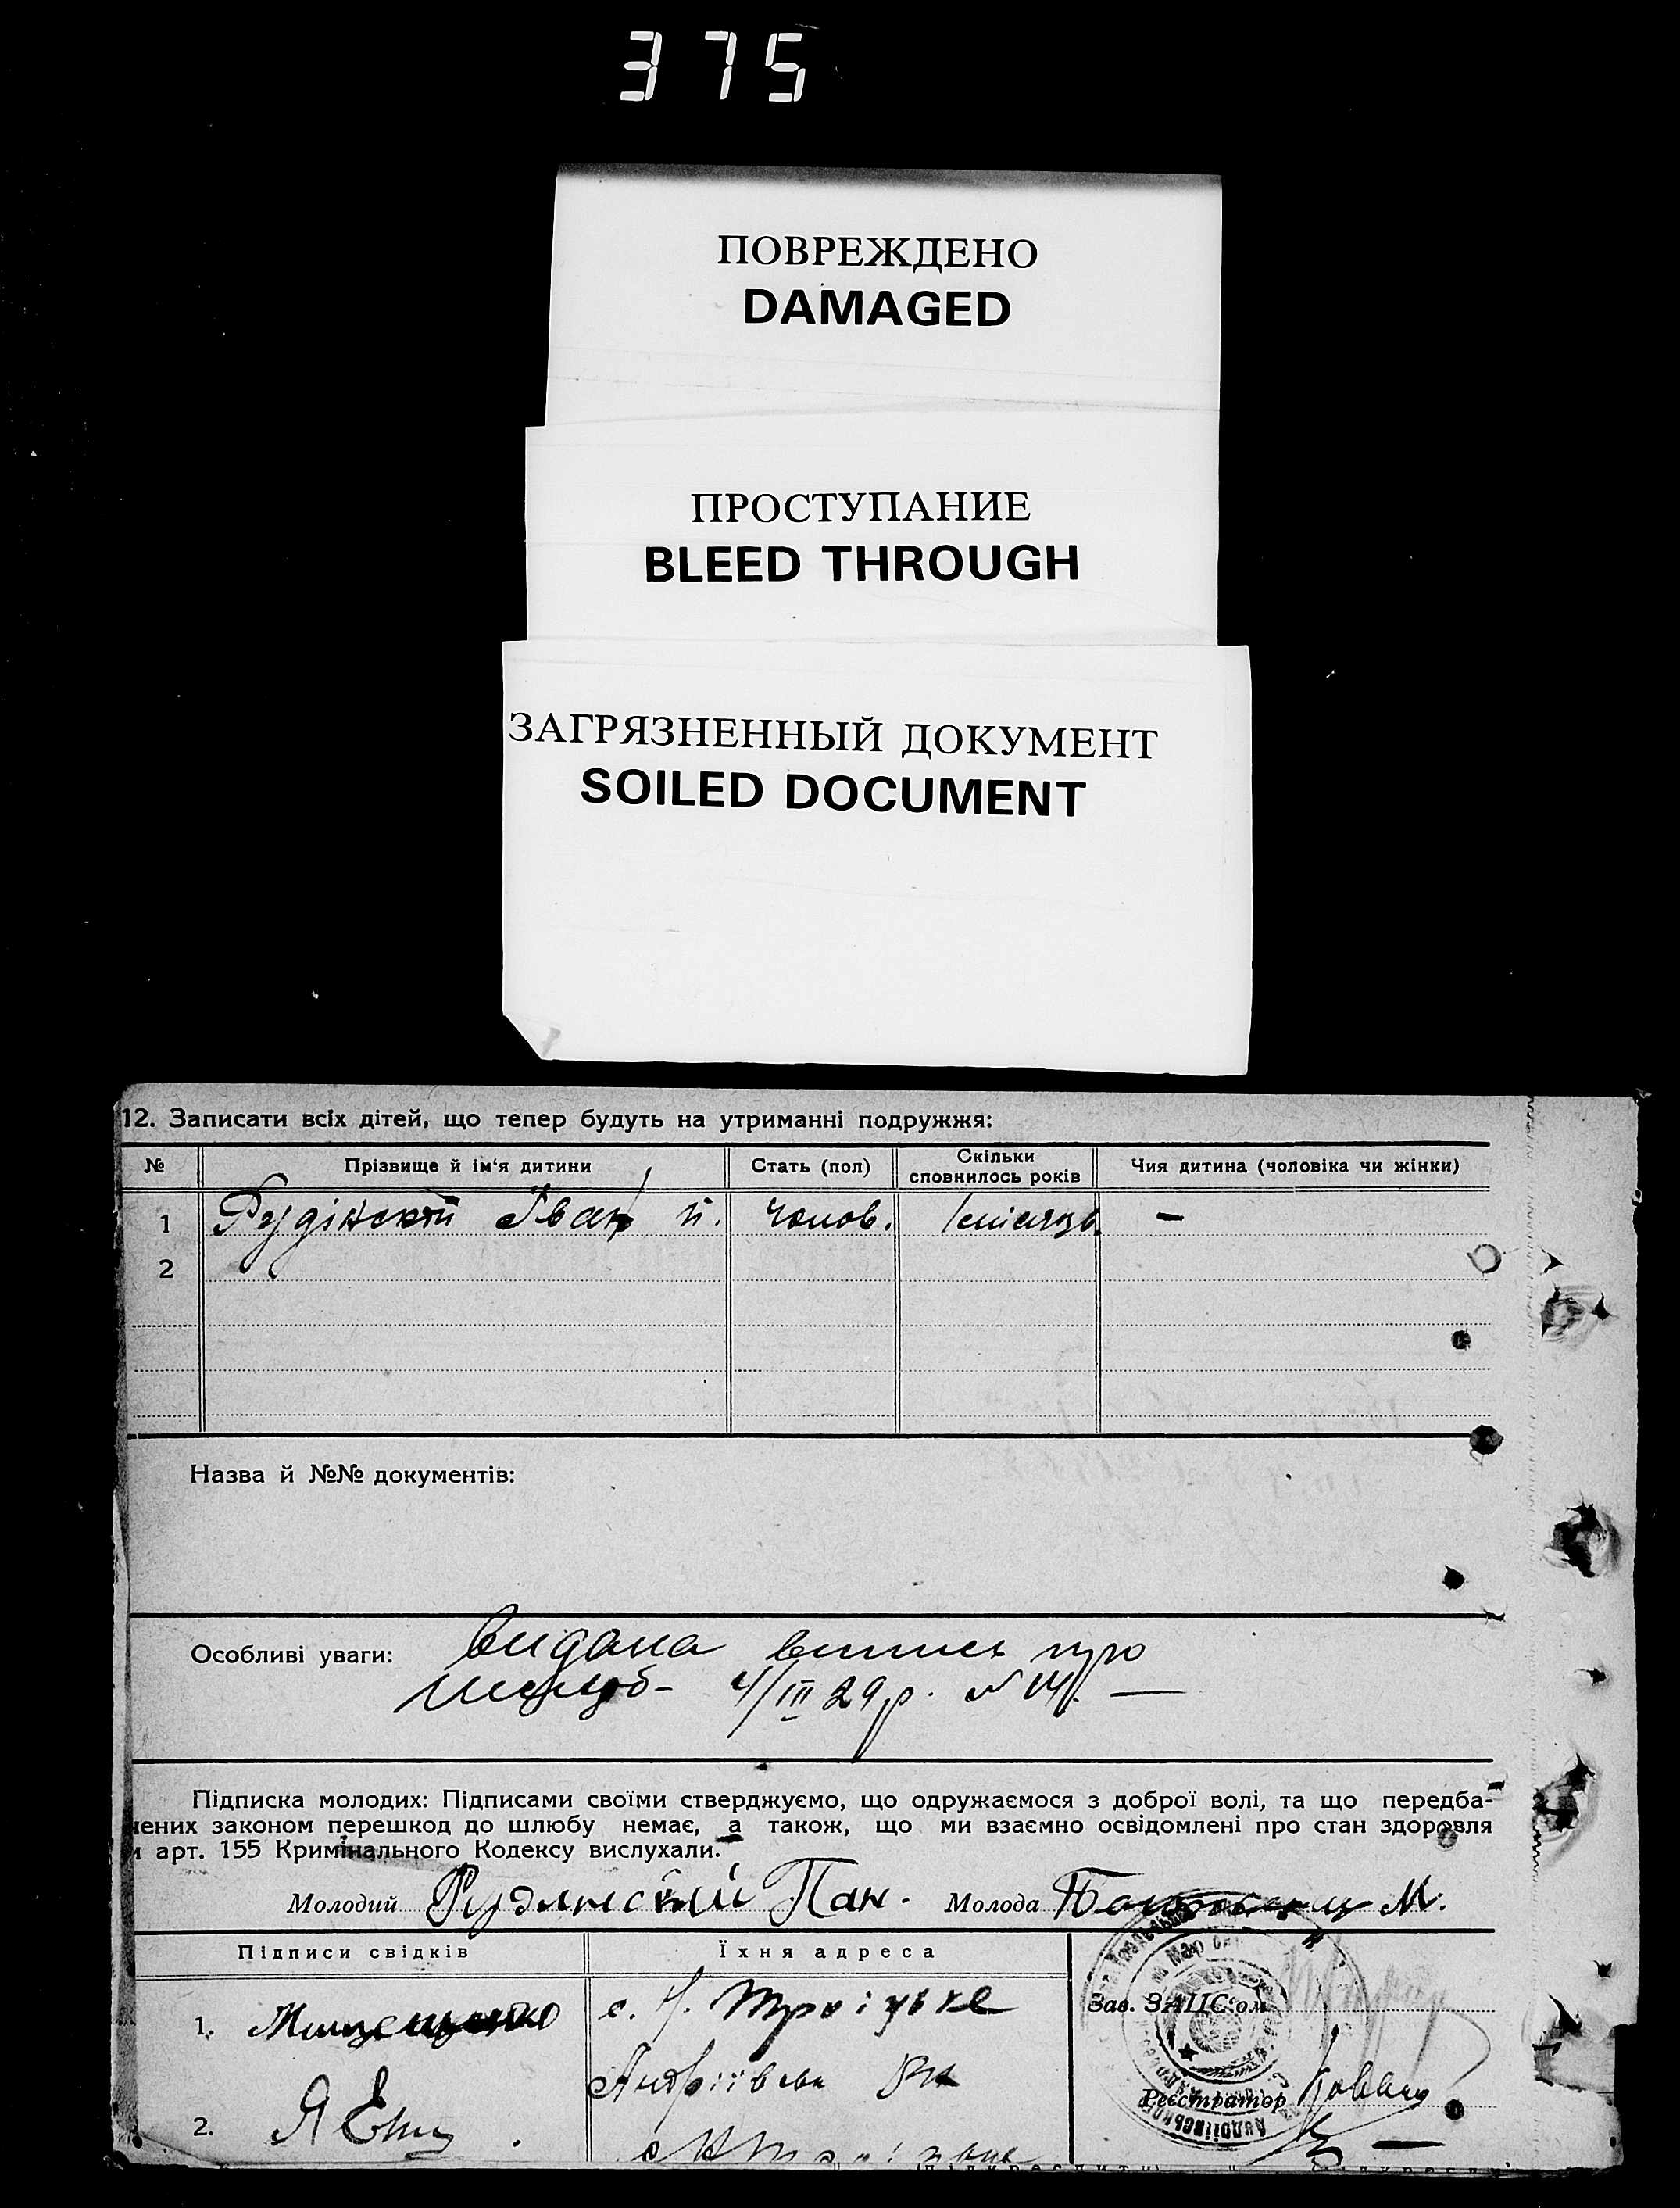 375
ПОВРЕЖДЕНО
DAMAGED
ПРОСТУПАНИЕ
BLEED THROUGH
ЗАГРЯЗНЕННЫЙ ДОКУМЕНТ
SOILED DOCUMENT
12. Записати всіх дітей, що тепер будуть на утриманні подружжя:
№ Прізвище й ім'я дитини Стать (пол) Скільки сповнилось років Чия дитина (чоловіка чи жінки)
1 Рудінский Іван й. чолов. —
2
Назва й №№ документів:
Особливі уваги: видана випись про
шлюб- 4/III 29 р. №
Підписка молодих: Підписами своїми стверджуємо, що одружаємося з доброї волі, та що передба-
чених законом перешкод до шлюбу немає, а також, що ми взаємно освідомлені про стан здоровля
и арт. 155 Кримінального Кодексу вислухали.
Молодий Рудинский Пан. Молода М.
Підписи свідків Їхня адреса
1. с. Н. Троіцьке Зав. ЗАГС'ом
Андріївськ
Реєстратор
2.